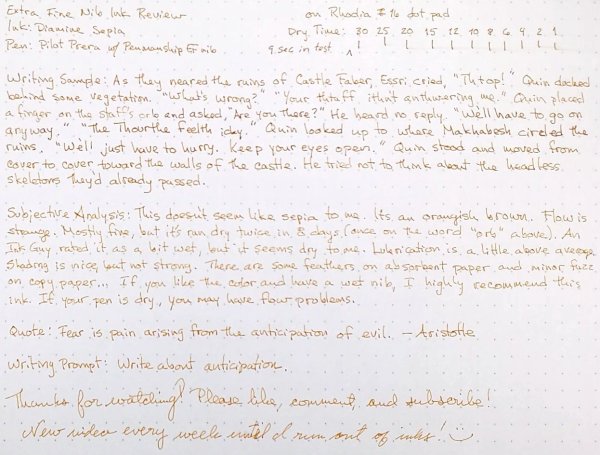 Extra Fine Nib Ink Review on Rhodia #16 dot pad
Ink: Diamine Sepia Dry Time: 30 25 20 15 12 10 8 6 4 2 1
Pen: Pilot Prera w/ Penmanship EF nib 9 sec in test ^
Writing Sample: As they neared the ruins of Castle Faber, Essri cried, "Thtop!" Quin ducked
behind some vegetation. "What's wrong?" "Your thtaff ithn't anthwering me." Quin placed
a finger on the staff's orb and asked, "Are you there?" He heard no reply. "We'll have to go on
anyway." "The Thourthe feelth icky." Quin looked up to where Makhabesh circled the
ruins. "We'll just have to hurry. Keep your eyes open." Quin stood and moved from
cover to cover toward the walls of the castle. He tried not to think about the headless
skeletons they'd already passed.
Subjective Analysis: This doesn't seem like sepia to me. Its an orangish brown. Flow is
strange. Mostly fine, but it's run dry twice in 8 days (once on the word "orb" above). An
Ink Guy rated it as a bit wet, but it seems dry to me. Lubrication is a little above average.
Shading is nice, but not strong. There are some feathers on absorbent paper and minor fuzz
on copy paper... If you like the color and have a wet nib, I highly recommend this
ink. If your pen is dry, you may have flow problems.
Quote: Fear is pain arising from the anticipation of evil. — Aristotle
Writing Prompt: Write about anticipation.
Thanks for watching! Please like, comment, and subscribe!
New video every week until I run out of inks!